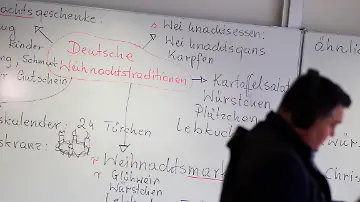 achtsgeschenke:
Kinder
Schmuck
Gutschein
Deutsche
Weihnachtstraditionen
Weihnachtsessen:
Weihnachtsgans
Karpfen
Kartoffelsalat
Würstchen
Plätzchen
Lebkuc
ähnlic
skalender: 24 Türchen
skranz:
Weihnachtsmark
Glühwein
Würstchen
Lebk
Würs
Chris